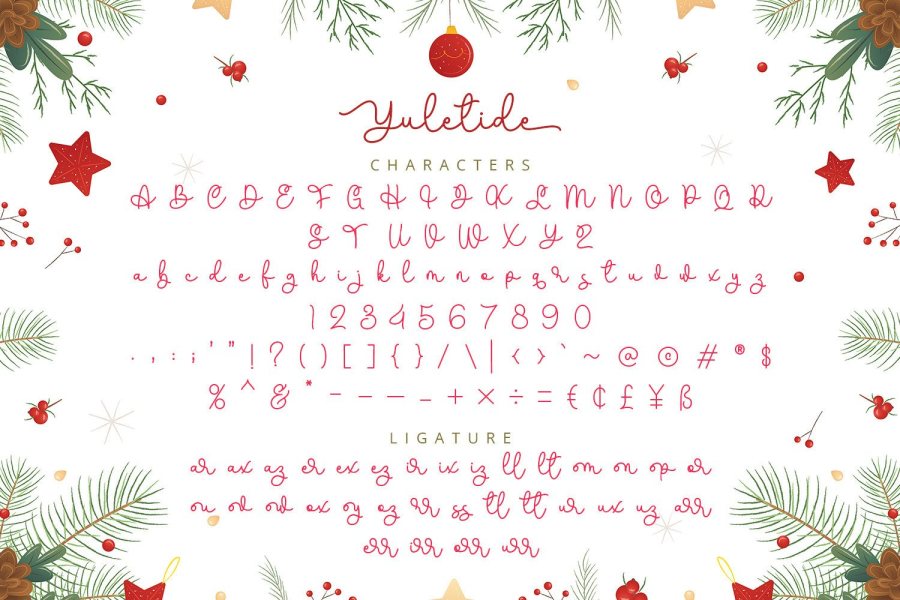 Yuletide
CHARACTERS
A B C D E F G H I J K L M N O P Q R
S T U V W X Y Z
a b c d e f g h i j k l m n o p q r s t u v w x y z
1 2 3 4 5 6 7 8 9 0
. , : ; ' " ! ? ( ) [ ] { } / \ | < > ` ~ @ © # ® $
% ^ & * - – — _ + × ÷ = € ¢ £ ¥ ß
LIGATURE
ar ax az er ex ez ir ix iz ll lt om on op or
ou ov ow ox oy oz rr ss tl tt ur ux uz arr
err irr orr urr